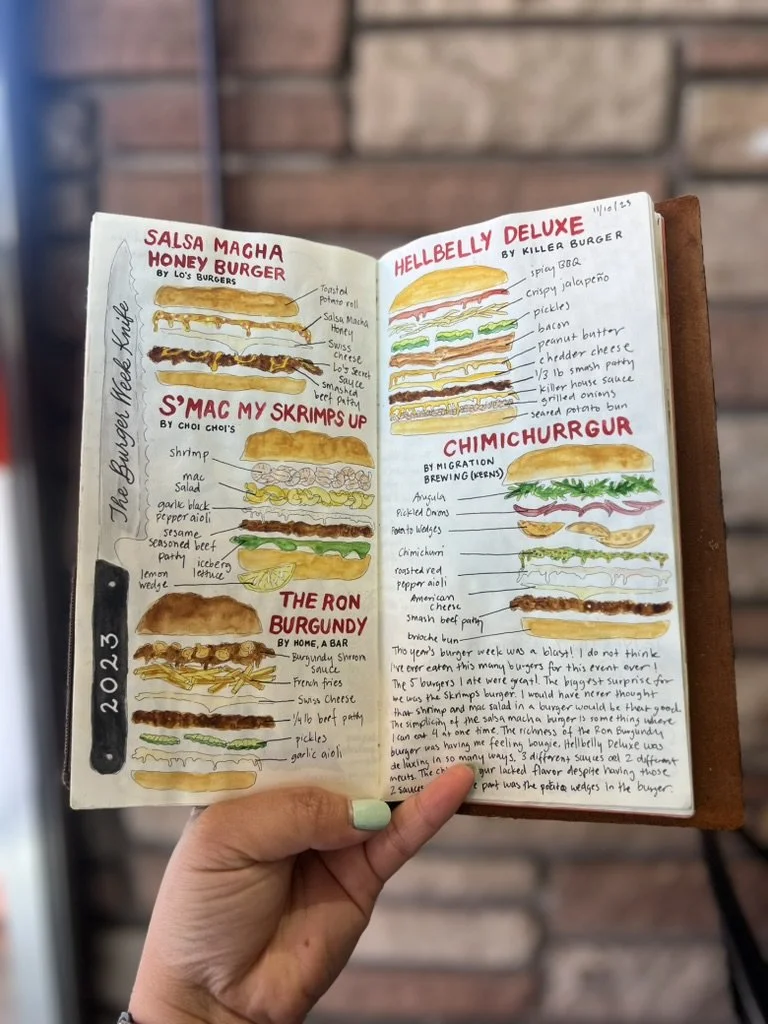 The Burger Week Knife
2023
SALSA MACHA
HONEY BURGER
BY LO'S BURGERS
Toasted
potato roll
Salsa Macha
Honey
Swiss
Cheese
Lo's Secret
Sauce
smashed
beef patty
S'MAC MY SKRIMPS UP
BY CHOI CHOI'S
shrimp
mac
Salad
garlic black
pepper aioli
sesame
seasoned beef
patty
iceberg
lettuce
lemon
wedge
THE RON
BURGUNDY
BY HOME, A BAR
Burgundy Shroom
Sauce
French fries
Swiss Cheese
1/4 lb beef patty
pickles
garlic aioli
11/10/23
HELLBELLY DELUXE
BY KILLER BURGER
spicy BBQ
crispy jalapeño
pickles
bacon
peanut butter
chedder cheese
1/3 lb smash patty
killer house sauce
grilled onions
seared potato bun
CHIMICHURRGUR
BY MIGRATION
BREWING (KERNS)
Arugula
Pickled Onions
Potato Wedges
Chimichurri
roasted red
pepper aioli
American
cheese
smash beef patty
brioche bun
This year's burger week was a blast! I do not think
I've ever eaten this many burgers for this event ever!
The 5 burgers I ate were great! The biggest surprise for
me was the Skrimps burger. I would have never thought
that shrimp and mac salad in a burger would be that good.
The simplicity of the salsa macha burger is something where
I can eat 4 at one time. The richness of the Ron Burgundy
burger was having me feeling bougie. Hellbelly Deluxe was
deluxing in so many ways. 3 different sauces and 2 different
meats. The gur lacked flavor despite having those
2 sauces part was the potato wedges in the burger.